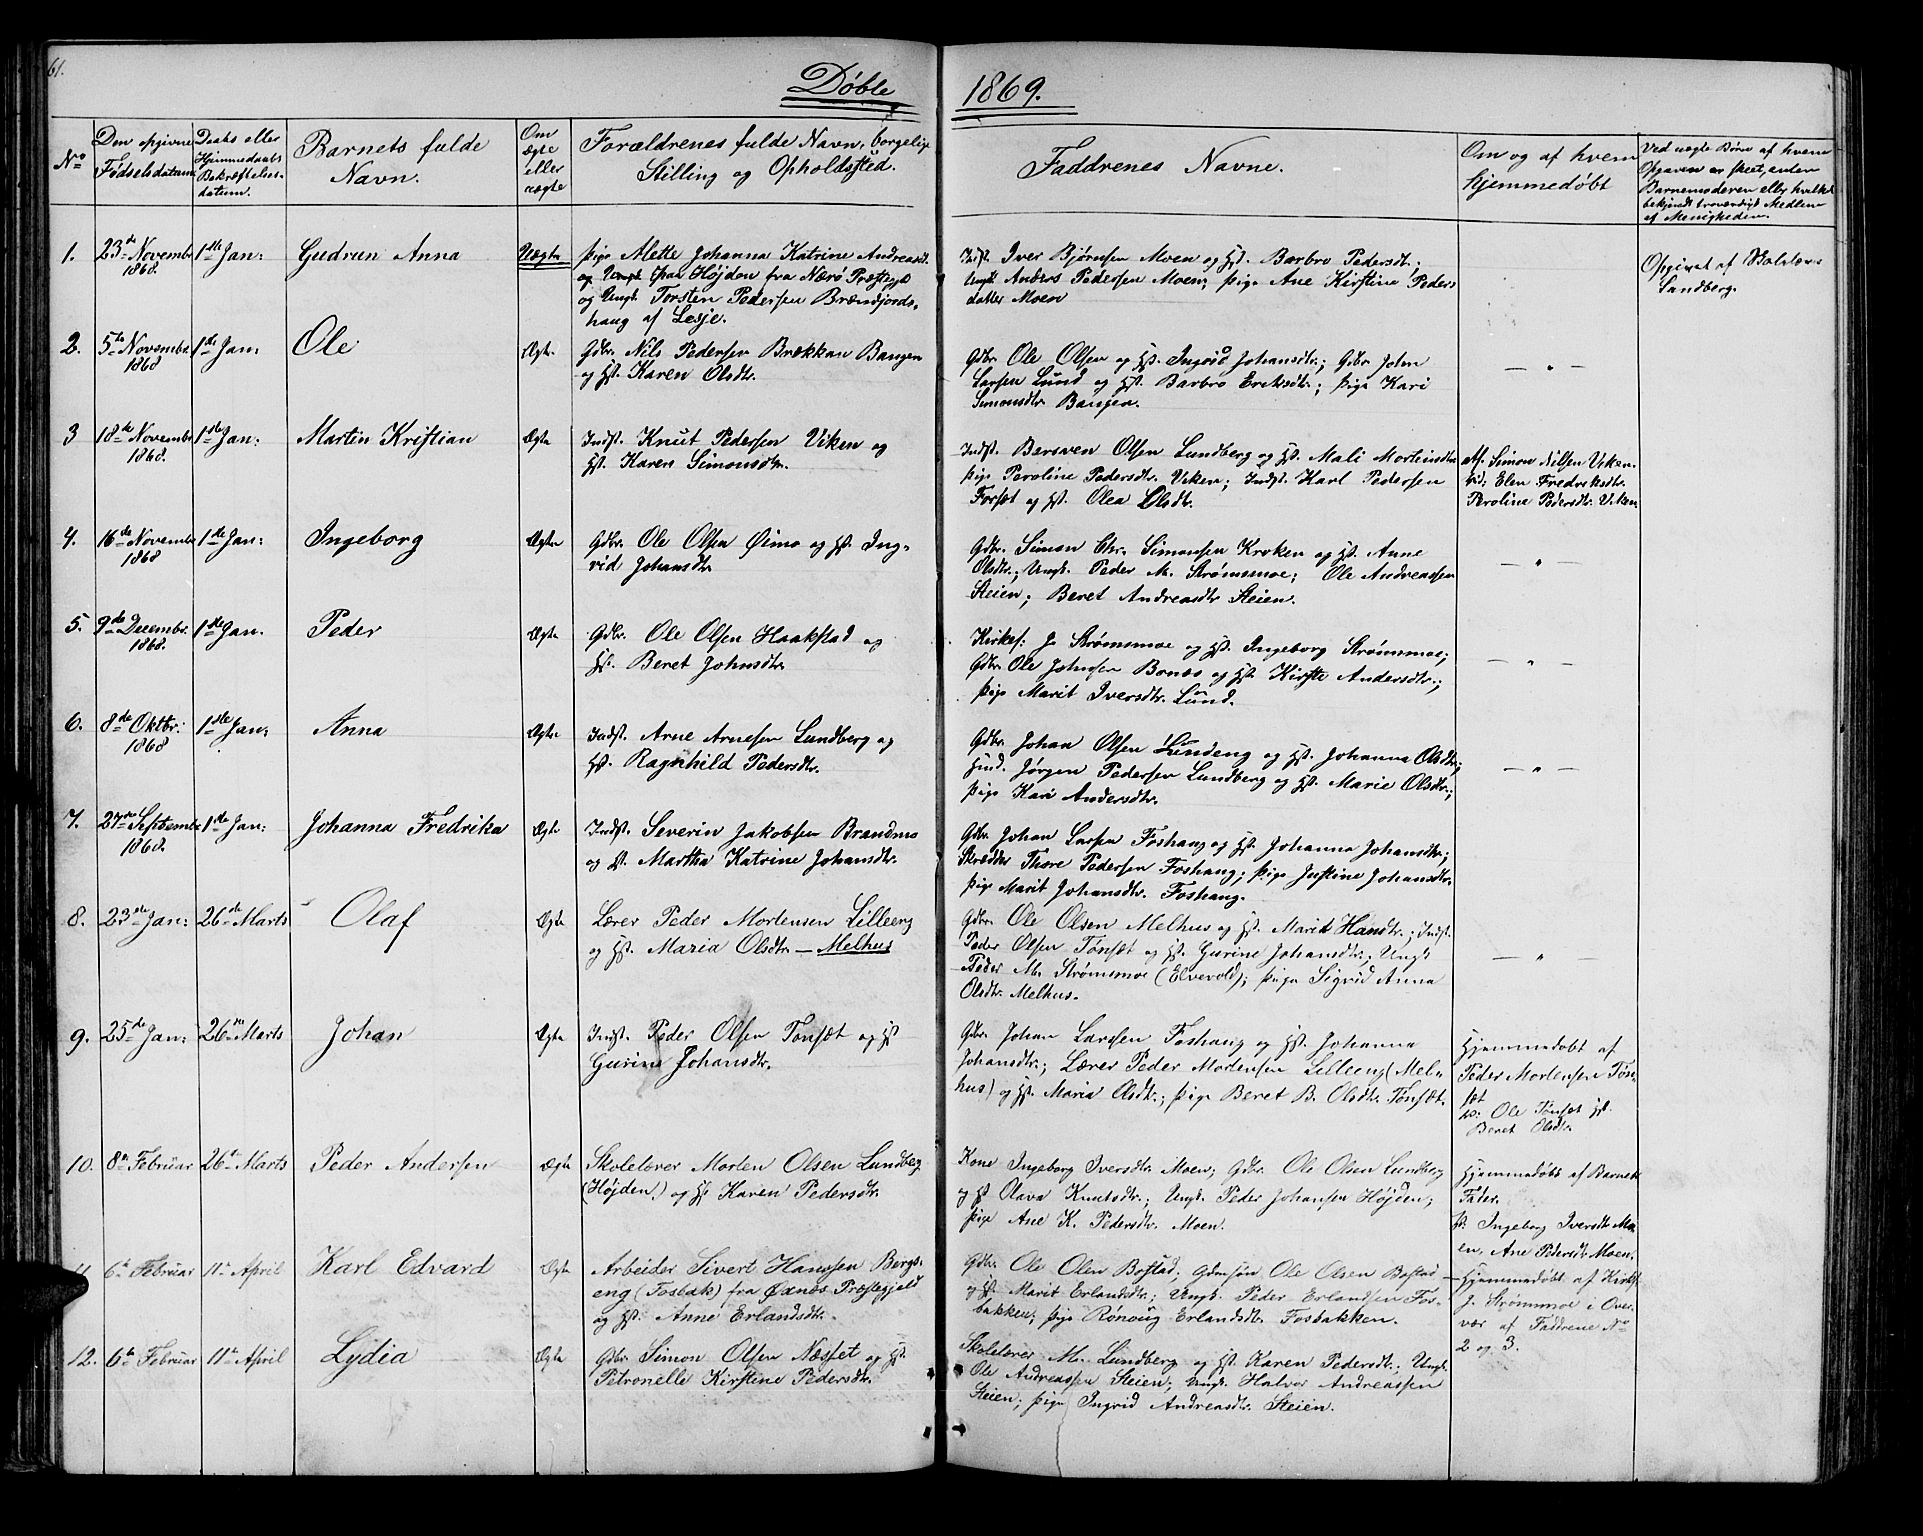 61.
Døbte 1869.
No
Den opgivne Fødselsdatum.
Daabs eller Hjemmedaabs Bekræftelses-datum.
Barnets fulde Navn.
Om ægte eller uægte
Forældrenes fulde Navn, borgelige Stilling og Opholdssted.
Faddrenes Navne.
Om og af hvem hjemmedøbt
Ved uægte Børn af hvem Opgaven er skeet, enten Barnemoderen eller hvilket bekjendt troværdigt Medlem af Menigheden.
1. 23de Novembr 1868. 1ste Jan: Gudrun Anna Uægte
Pige Mette Johanna Katrine Andreasd.
Højden fra Nærø Præstegjd
og Ungk. Torsten Pedersen Brændjords-
haug af Lesje.
Indst. Iver Bjørnsen Moen og Hst. Barbro Pedersdt.;
Ungk. Anders Pedersen Moen; Pige Ane Kirstine Peders
datter Moen
Opgivet af
Sandberg.
2. 5te Novembr 1868 1ste Jan: Ole Ægte
Gdbr. Nils Pedersen Brækkan Bangen
og Hst. Karen Olsdtr.
Gdbr. Ole Olsen og Hst. Ingrid Johansdtr.; Gdbr John
Larsen Lund og Hst. Barbro Eriksdtr.; Pige Kari
Simonsdtr. Bangen.
— " —
3 18de Novembr 1868. 1ste Jan: Martin Kristian Ægte
Indst. Knut Pedersen Viken og
Hst. Karen Simonsdtr.
Indst. Bersven Olsen Lundberg og Hst. Mali Mortensdtr
Pige Peroline Pedersdtr. Viken; Indst. Karl Pedersen
Forsæt og Hst. Olea Olsdtr.
Af Simon Nilsen Viken.
Vid; Elen Fredriksdtr.
Peroline Pedersdtr. Viken
4. 16de Novembr 1868 1ste Jan: Ingeborg Ægte
Gdbr. Ole Olsen Øimo og Hst. Ing-
rid Johansdtr.
Gdbr. Simon Chr. Simonsen Kroken og Hst. Anne
Olsdtr.; Ungk. Peder M. Strømsmoe; Ole Andreassen
Steien; Beret Andreasdtr. Steien.
— " —
5. 9de Decembr. 1868. 1ste Jan. Peder Ægte
Gdbr. Ole Olsen Haakstad og
Hst. Beret Johnsdtr.
Kirkes: J. Strømsmoe og Hst. Ingeborg Strømsmoe;
Gdbr. Ole Johnsen Bonæs og Hst. Kirsti Andersdtr.;
Pige Marit Iversdtr. Lund.
— " —
6. 8de Oktbr: 1868 1ste Jan: Anna Ægte
Indst. Arne Arnesen Lundberg og
Hst. Ragnhild Pedersdtr.
Gdbr. Johan Olsen Lundeng og Hst. Johanna Olsdtr;
Jørgen Pedersen Lundberg og Hst. Marie Olsdtr.;
Pige Kari Andersdtr.
— " —
7. 27de Septembr 1868. 1ste Jan: Johanna Fredrika Ægte
Indst. Severin Jakobsen Brandmo
og Hst. Martha Katrine Johansdtr.
Gdbr. Johan Larsen Foshaug og Hst. Johanna Johansdtr.;
Skrædder Thore Pedersen Foshaug; Pige Justine Johansdtr.
Pige Marit Johansdtr. Foshaug.
8. 23de Jan: 26de Marts Olaf Ægte
Lærer Peder Mortensen Lilleeng
og Hst. Maria Olsdtr. — Melhus
Gdbr. Ole Olsen Melhus og Hst. Marit Hansdtr.; Indst.
Peder Olsen Tønsæt og Hst. Gurine Johansdtr.; Ungk
Peder M. Strømsmoe (Elvevold); Pige Sigrid Anna
Olsdtr. Melhus.
— " —
9. 25de Jan: 26de Marts Johan Ægte
Indst. Peder Olsen Tønsæt og Hst
Gurine Johansdtr.
Gdbr. Johan Larsen Foshaug og Hst. Johanna
Johansdtr.; Lærer Peder Mortensen Lilleeng (Mel-
hus) og Hst. Maria Olsdtr.; Pige Beret B. Olsdtr. Tønsæt.
Hjemmedøbt af
Peder Mortensen Tøn-
sæt
V: Ole Tønsæt Hst.
Beret Olsdtr.
10. 8de Februar 26de Marts Peder Andersen Ægte
Skolelærer Morten Olsen Lundberg
(Højden.) og Hst Karen Pedersdtr.
Kone Ingeborg Iversdtr. Moen; Gdbr. Ole Olsen Lundberg
og Hst Olava Knutsdtr.; Ungk. Peder Johansen Højden;
Pige Ane K. Pedersdtr. Moen.
Hjemmedøbt af Barnets
Fader.
V: Ingeborg Iversdtr Mo-
en, Ane Pedersdtr Moen.
11. 6te Februar 11te April Karl Edvard Ægte
Arbeider Sivert Hanssen Bergs-
eng (Fosbak) fra Øxnæs Præstegjeld
og Hst: Anne Erlandsdtr.
Gdbr. Ole Olsen Bostad; Gdmsøn Ole Olsen Bostad
og Hst. Marit Erlandsdtr.; Ungk. Peder Erlandsen Fos-
bakken; Pige Rønnug Erlandsdtr. Fosbakken.
Hjemmedøbt af Kirks.
J. Strømmoe i Over-
vær af Faddrene No
2 og 3.
12. 6te Februar 11te April Lydia Ægte
Gdbr. Simon Olsen Næsset og Hst.
Petronelle Kirstine Pedersdtr.
Skolelærer M. Lundberg og Hst. Karen Pedersdtr.; Ungk.
Ole Andreassen Steien; Ungk. Halvor Andreassen
Steien; Pige Ingrid Andreasdtr. Steien.